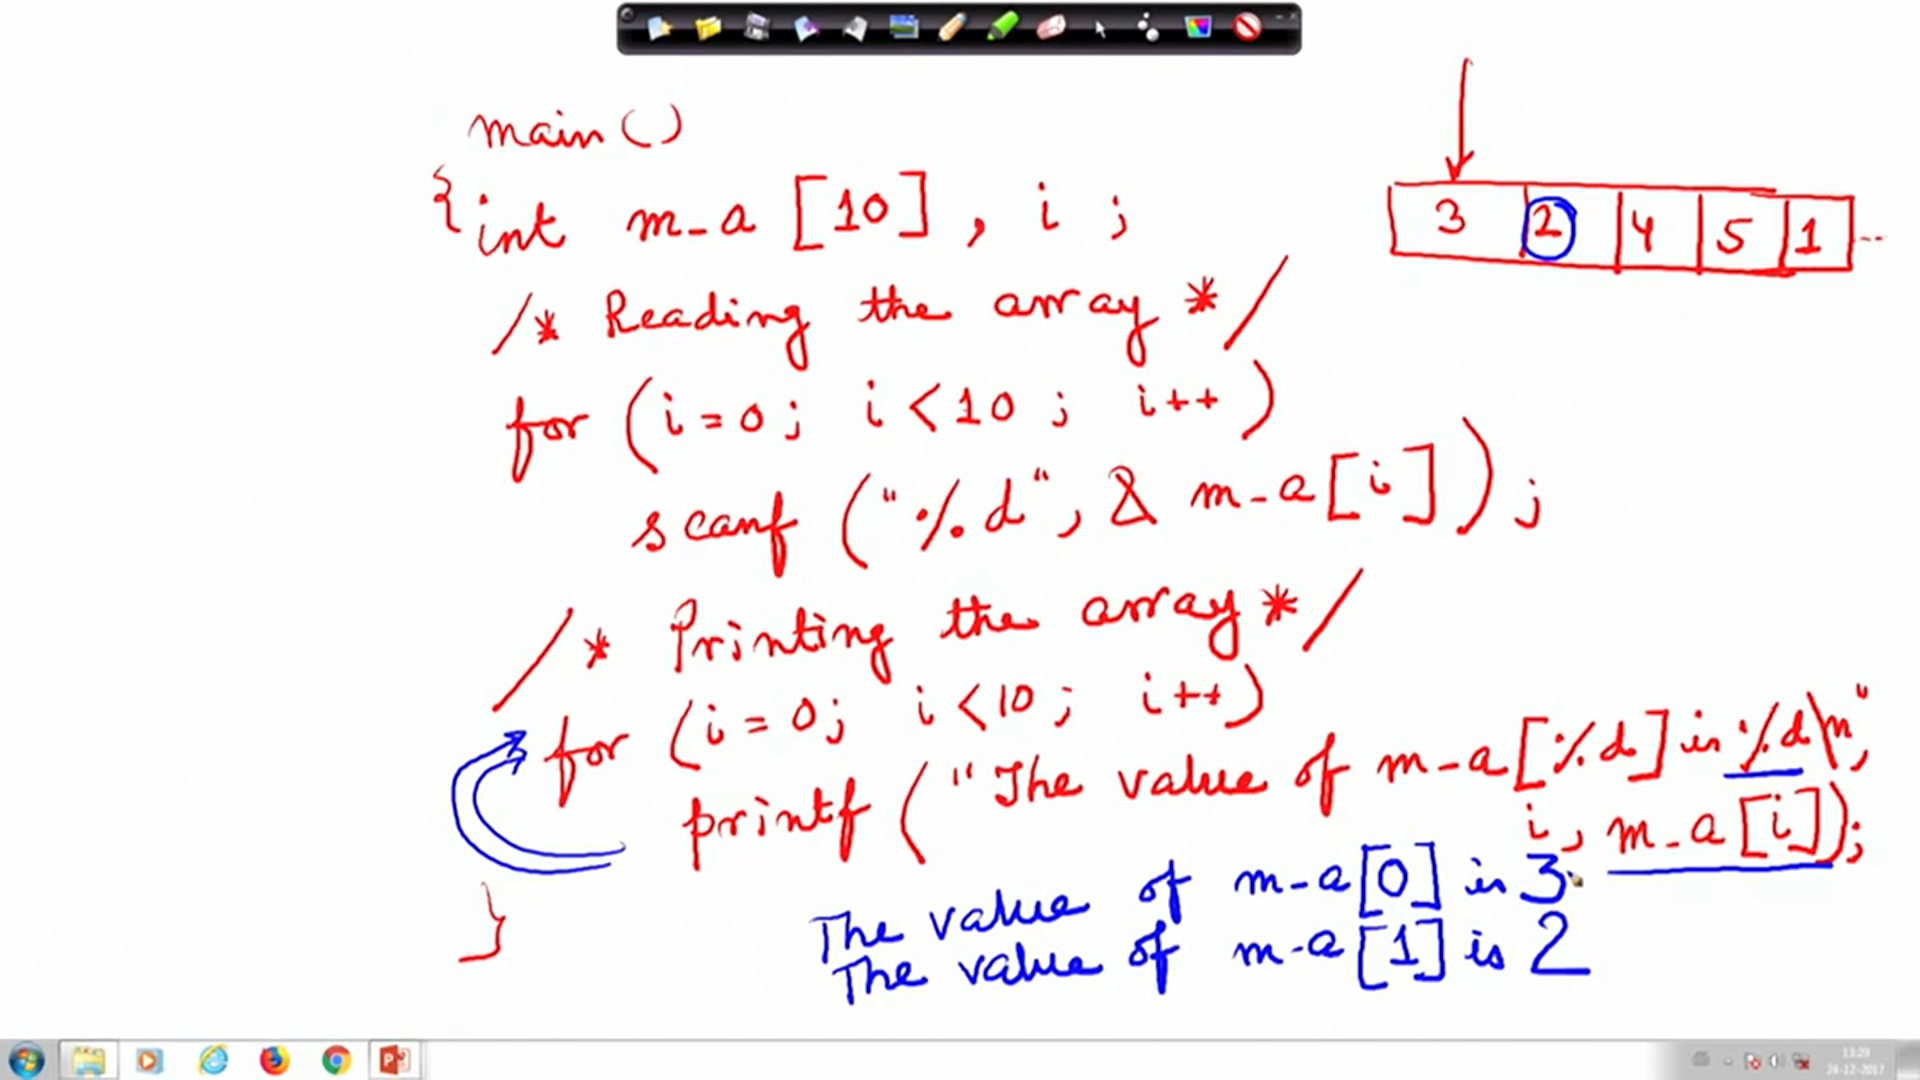 main ()
{ int m_a [10] , i ;
3 2 4 5 1 ...
/* Reading the array */
for (i = 0; i < 10 ; i++)
scanf ("%d", & m_a[i]) ;
/* Printing the array */
for (i = 0; i < 10; i++)
printf ("The value of m_a[%d] is %d\n",
i, m_a[i]);
}
The value of m_a[0] is 3
The value of m_a[1] is 2
13:29
24-12-2017